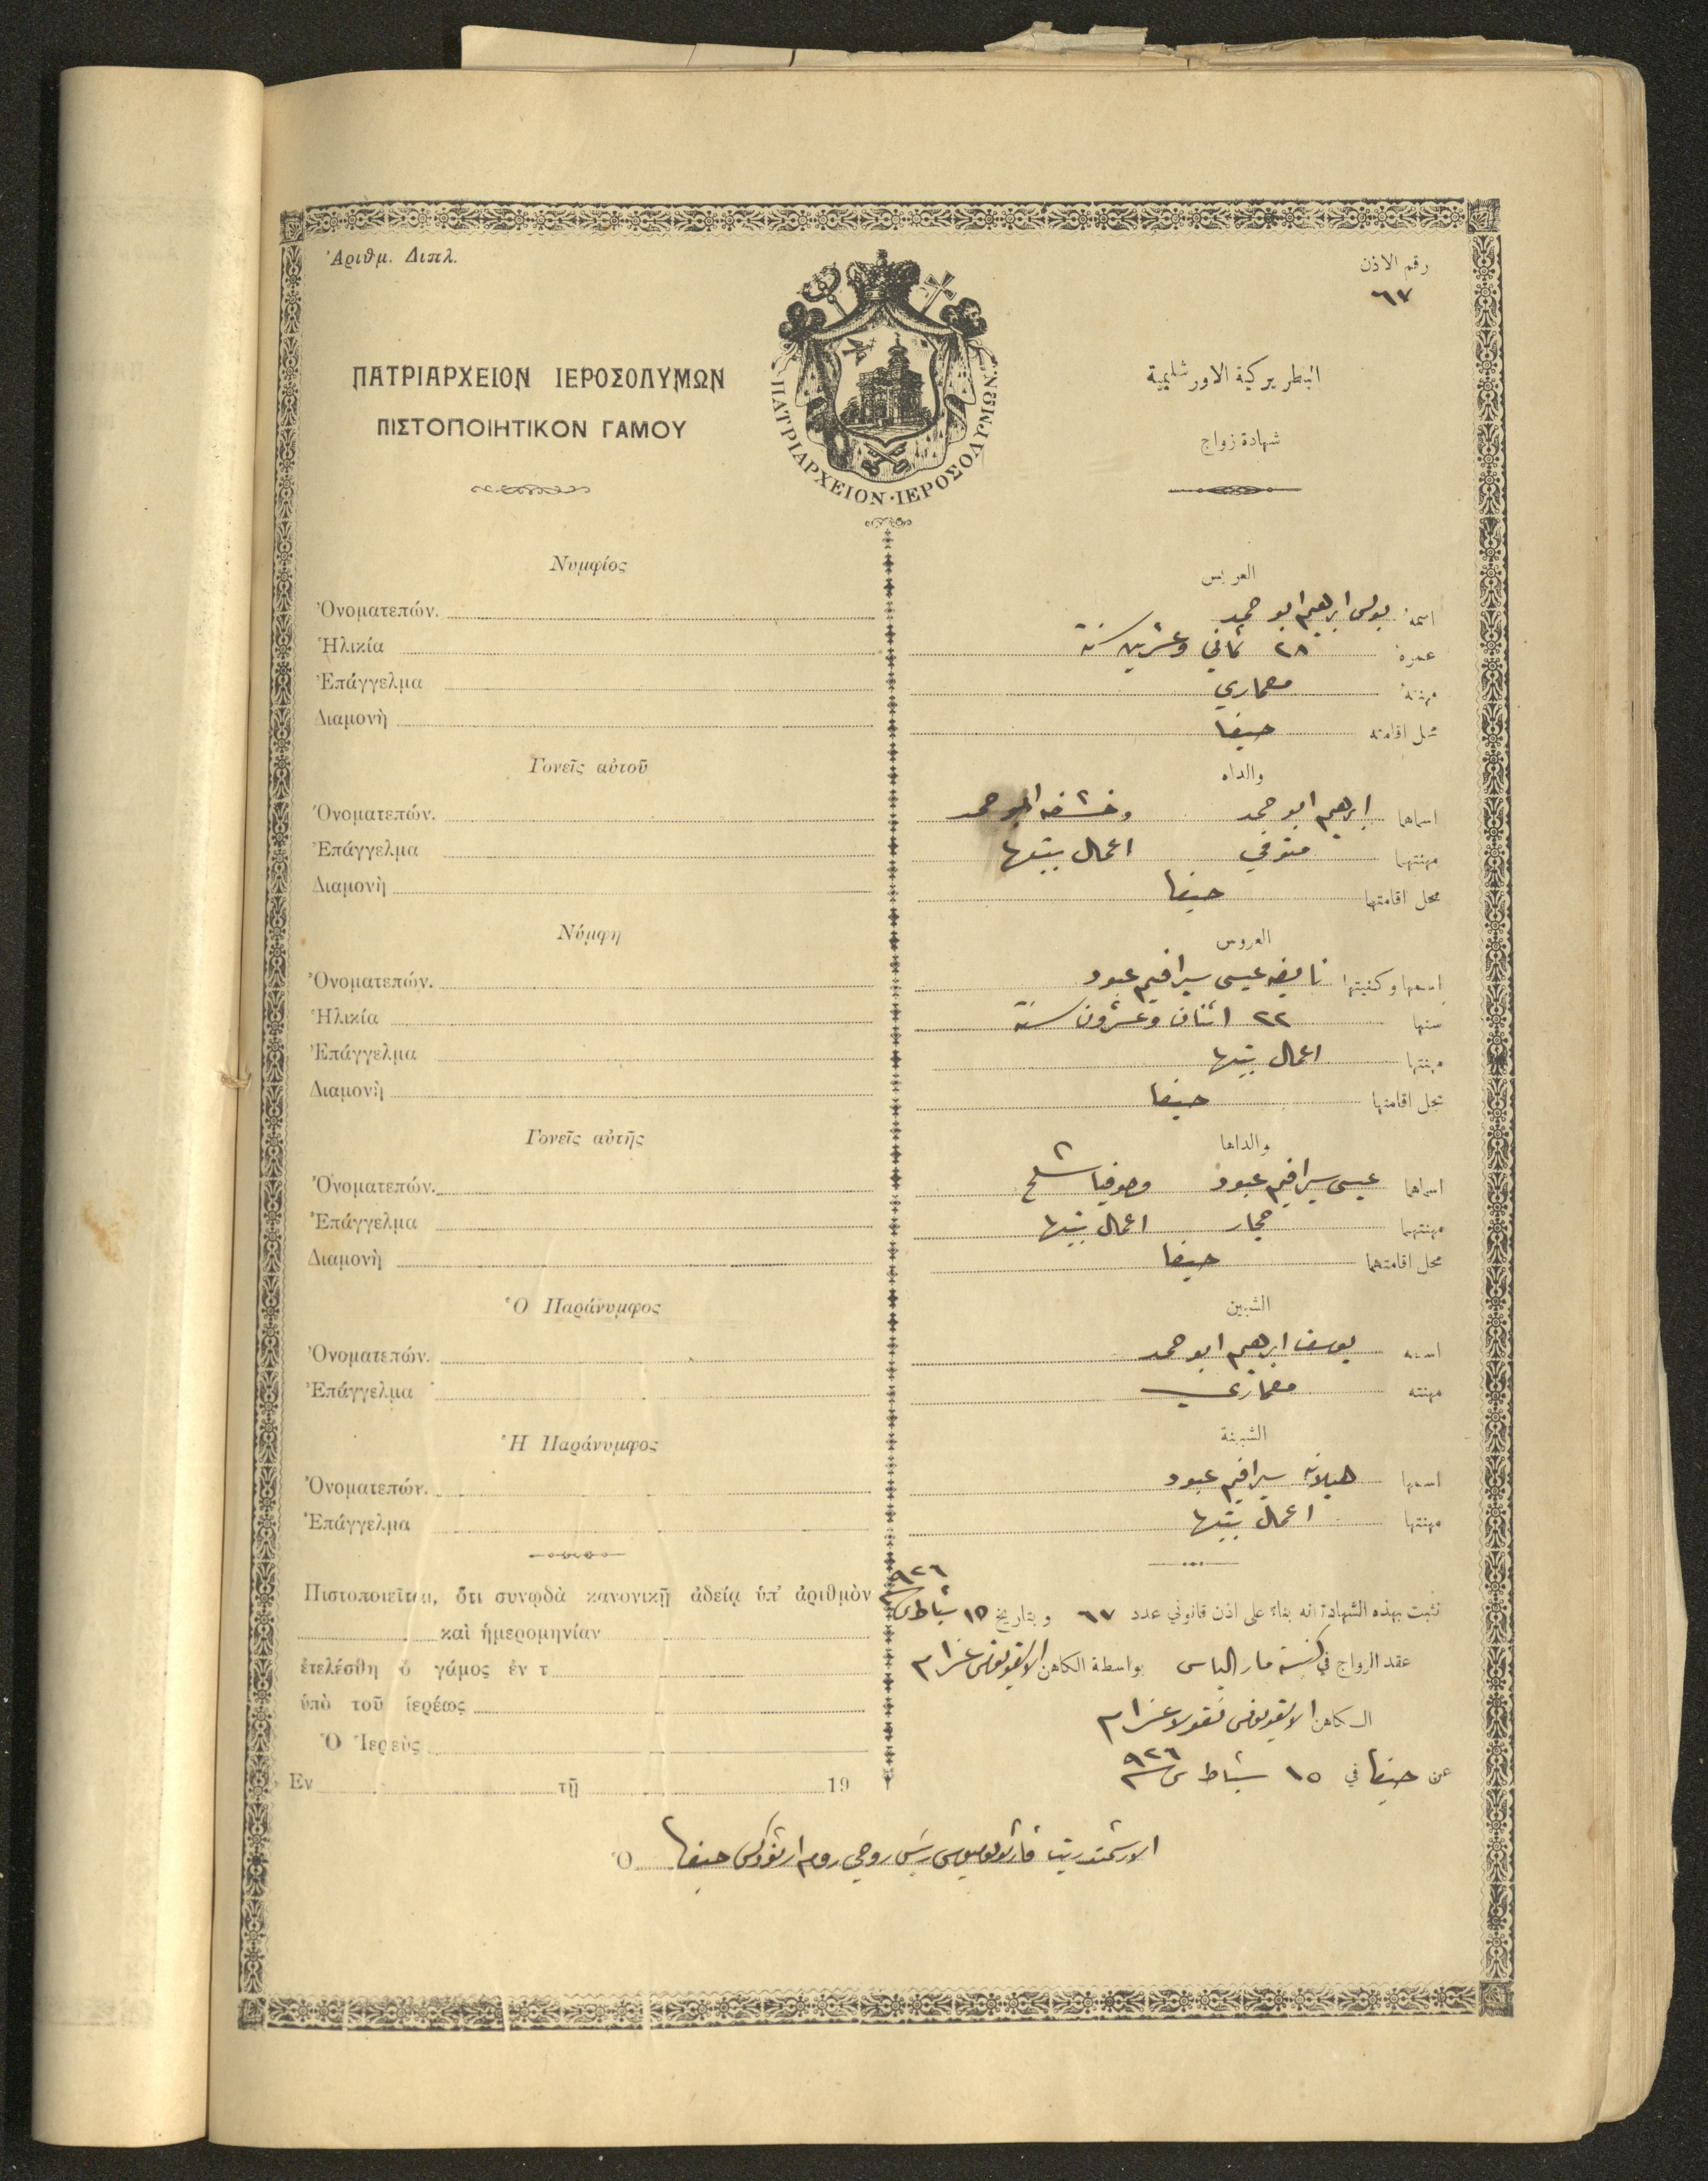 Ἀριθμ. Διπλ.
رقم الاذن
٦٧
ΠΑΤΡΙΑΡΧΕΙΟΝ ΙΕΡΟΣΟΛΥΜΩΝ
ΠΙΣΤΟΠΟΙΗΤΙΚΟΝ ΓΑΜΟΥ
ΠΑΤΡΙΑΡΧΕΙΟΝ·ΙΕΡΟΣΟΛΥΜΩΝ
البطريركية الاورشليمية
شهادة زواج
Νυμφίος
Ὀνοματεπών.
Ἡλικία
Ἐπάγγελμα
Διαμονὴ
Γονεῖς αὐτοῦ
Ὀνοματεπών.
Ἐπάγγελμα
Διαμονὴ
Νύμφη
Ὀνοματεπών.
Ἡλικία
Ἐπάγγελμα
Διαμονὴ
Γονεῖς αὐτῆς
Ὀνοματεπών.
Ἐπάγγελμα
Διαμονὴ
Ὁ Παράνυμφος
Ὀνοματεπών.
Ἐπάγγελμα
Ἡ Παράνυμφος
Ὀνοματεπών.
Ἐπάγγελμα
Πιστοποιεῖται, ὅτι συνῳδὰ κανονικῇ ἀδείᾳ ὑπ' ἀριθμὸν
καὶ ἡμερομηνίαν
ἐτελέσθη ὁ γάμος ἐν τ
ὑπὸ τοῦ ἱερέως
Ὁ Ἱερεὺς
Ἐν τῇ 19
العريس
اسمه بولس ابرهيم ابو حمد
عمره ٢٨ ثماني وعشرين سنة
مهنته معماري
محل اقامته حيفا
والداه
اسماهما ابرهيم ابو حمد ابو حمد
مهنتهما متوفي اعمال بيتها
محل اقامتهما حيفا
العروس
اسمها وكنيتها نايفه عيسى سيرافيم عبود
سنها ٢٢ اثنان وعشرون سنة
مهنتها اعمال بيتها
محل اقامتها حيفا
والداها
اسماهما عيسى سيرافيم عبود وصوفيا شلح
مهنتهما حجار اعمال بيتها
محل اقامتهما حيفا
الشبين
اسمه يوسف ابرهيم ابو حمد
مهنته معماري
الشبينة
اسمها هيلانه سيرافيم عبود
مهنتها اعمال بيتها
نثبت بهذه الشهادة انه بناء على اذن قانوني عدد ٦٧ وبتاريخ ١٥ شباط سنة ٩٢٦
عقد الزواج في كنيسة مار الياس بواسطة الكاهن الايقونومس عزام
الكاهن الايقونومس نقولا عزام
عن حيفا في ١٥ شباط سنة ٩٢٦
Ὁ الارشمندريت رئيس روحي روم ارثوذكس حيفا